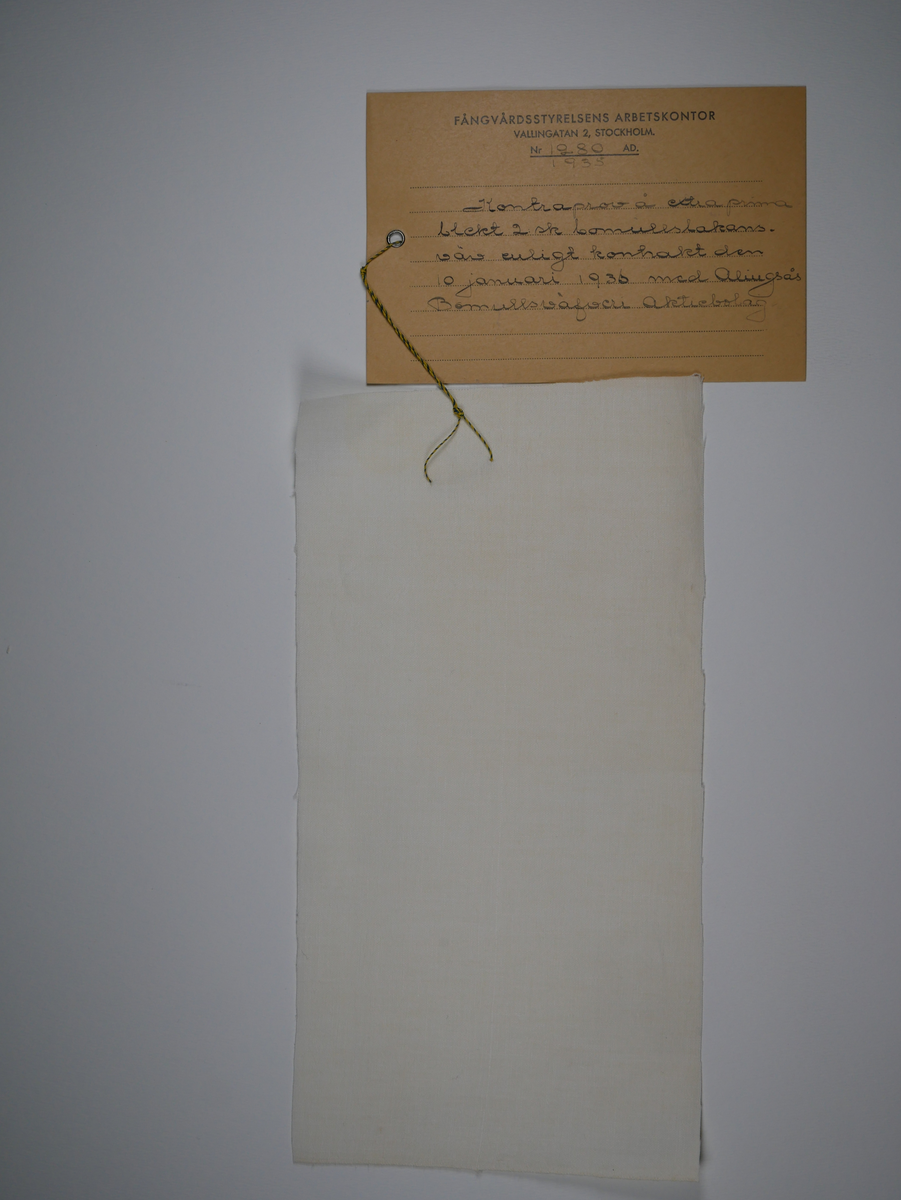 FÅNGVÅRDSSTYRELSENS ARBETSKONTOR
VALLINGATAN 2, STOCKHOLM.
Nr 1280 AD.
1935
Kontraprov å extra prima
blekt 2 sk bomullslakans-
väv enligt kontrakt den
10 januari 1936 med Alingsås
Bomullsväfveri Aktiebolag.